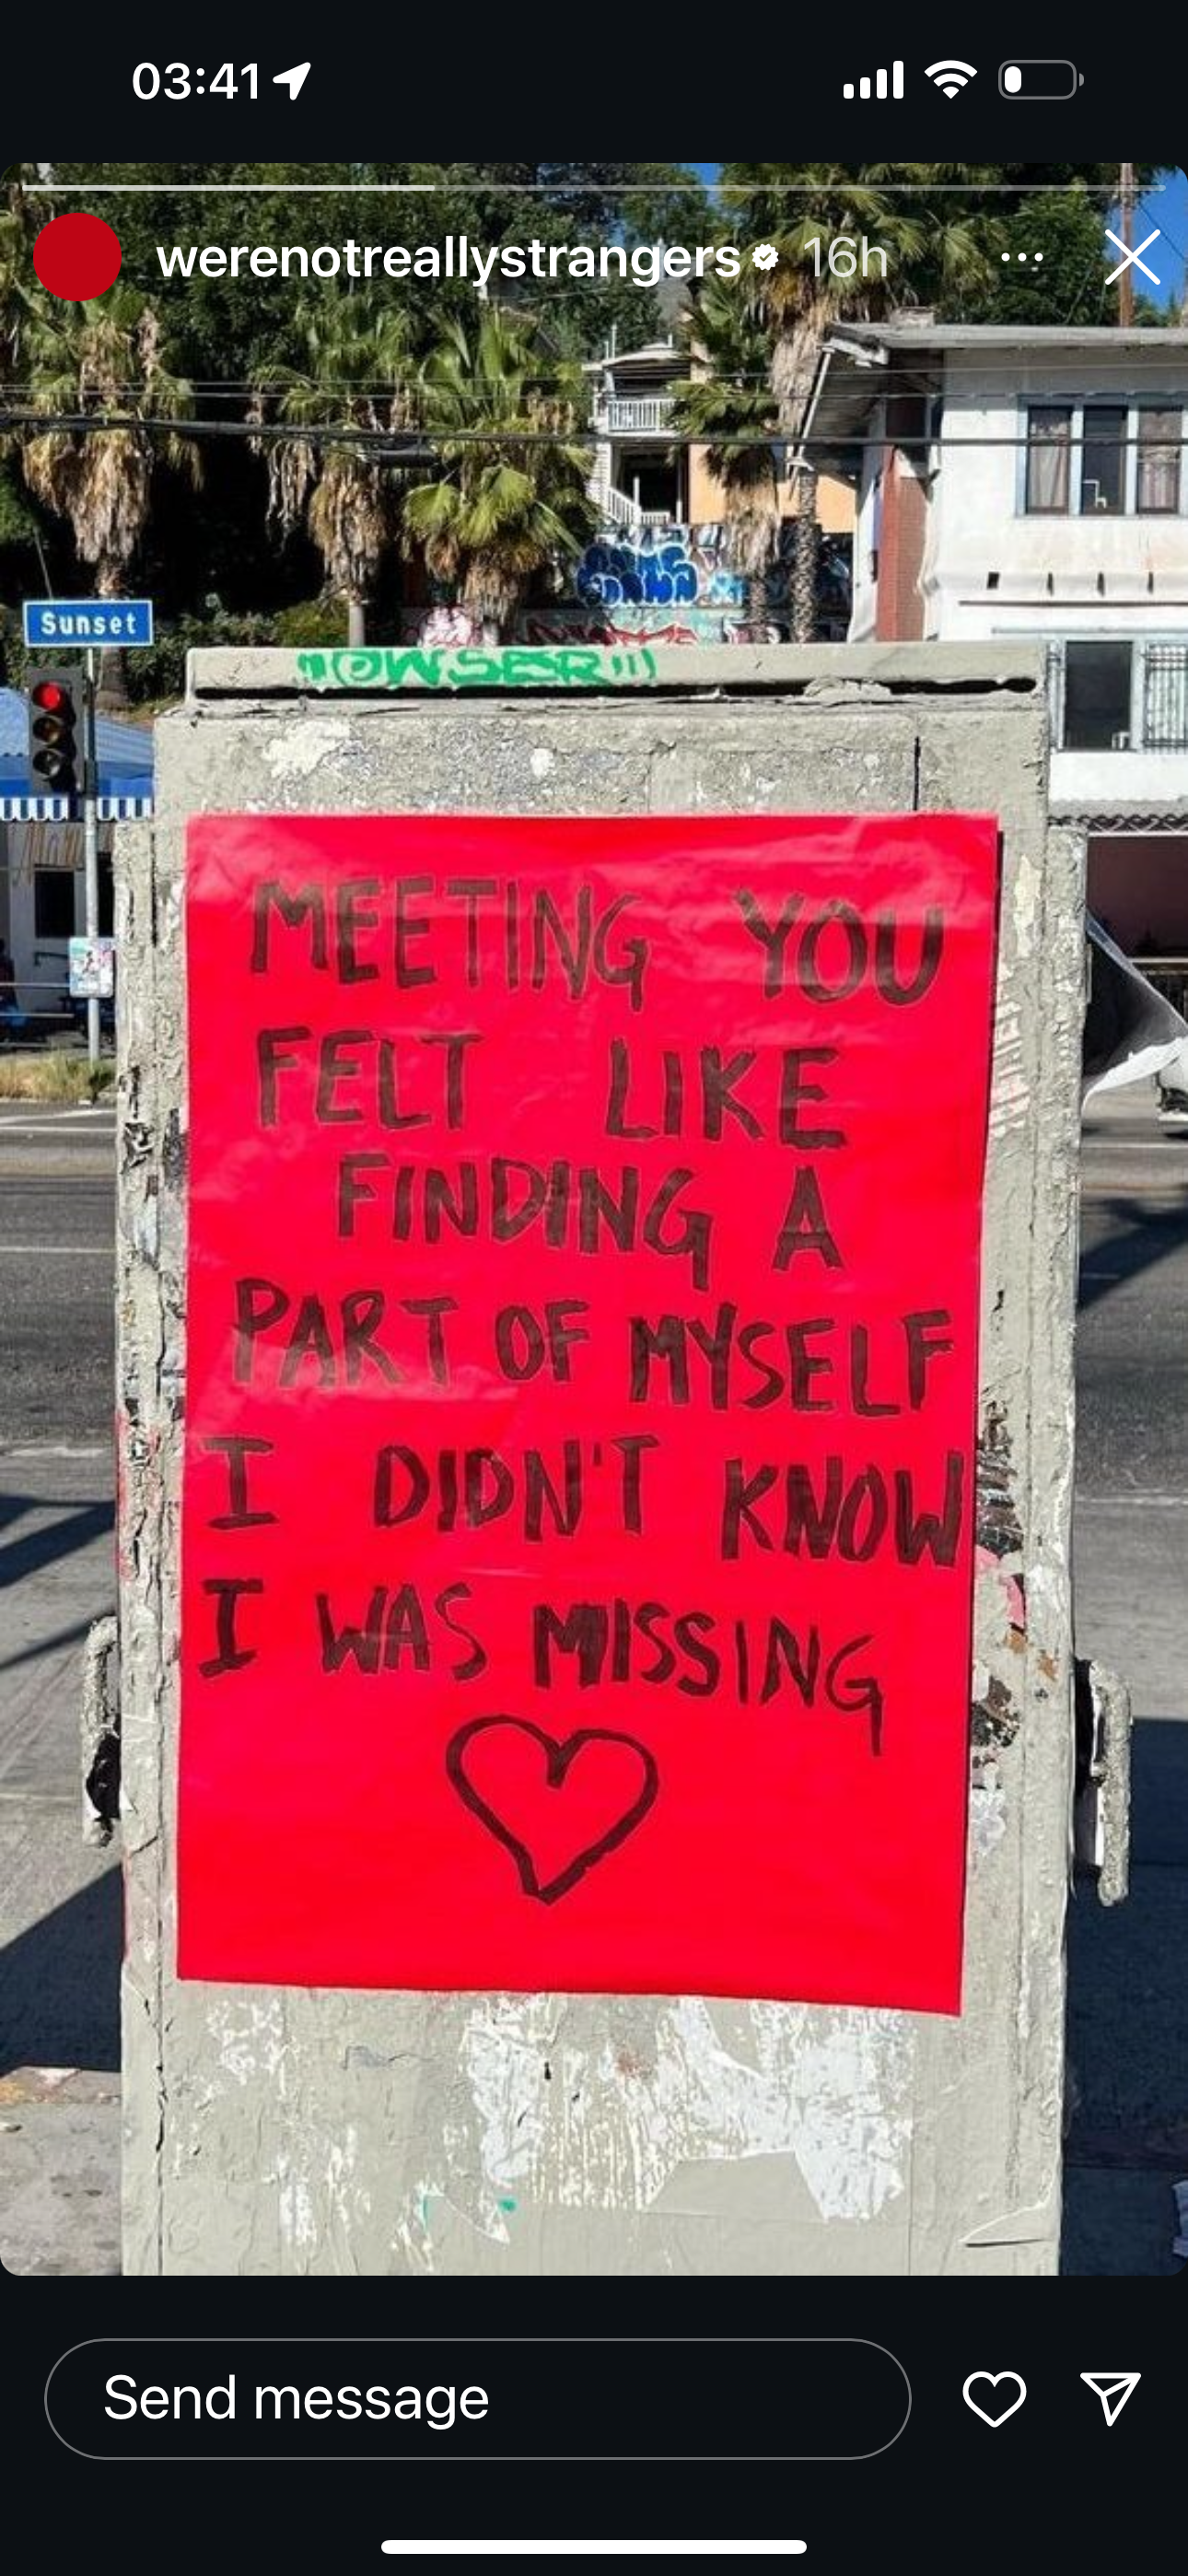 03:41
werenotreallystrangers 16h
Sunset
MEETING YOU
FELT LIKE
FINDING A
PART OF MYSELF
I DIDN'T KNOW
I WAS MISSING
Send message